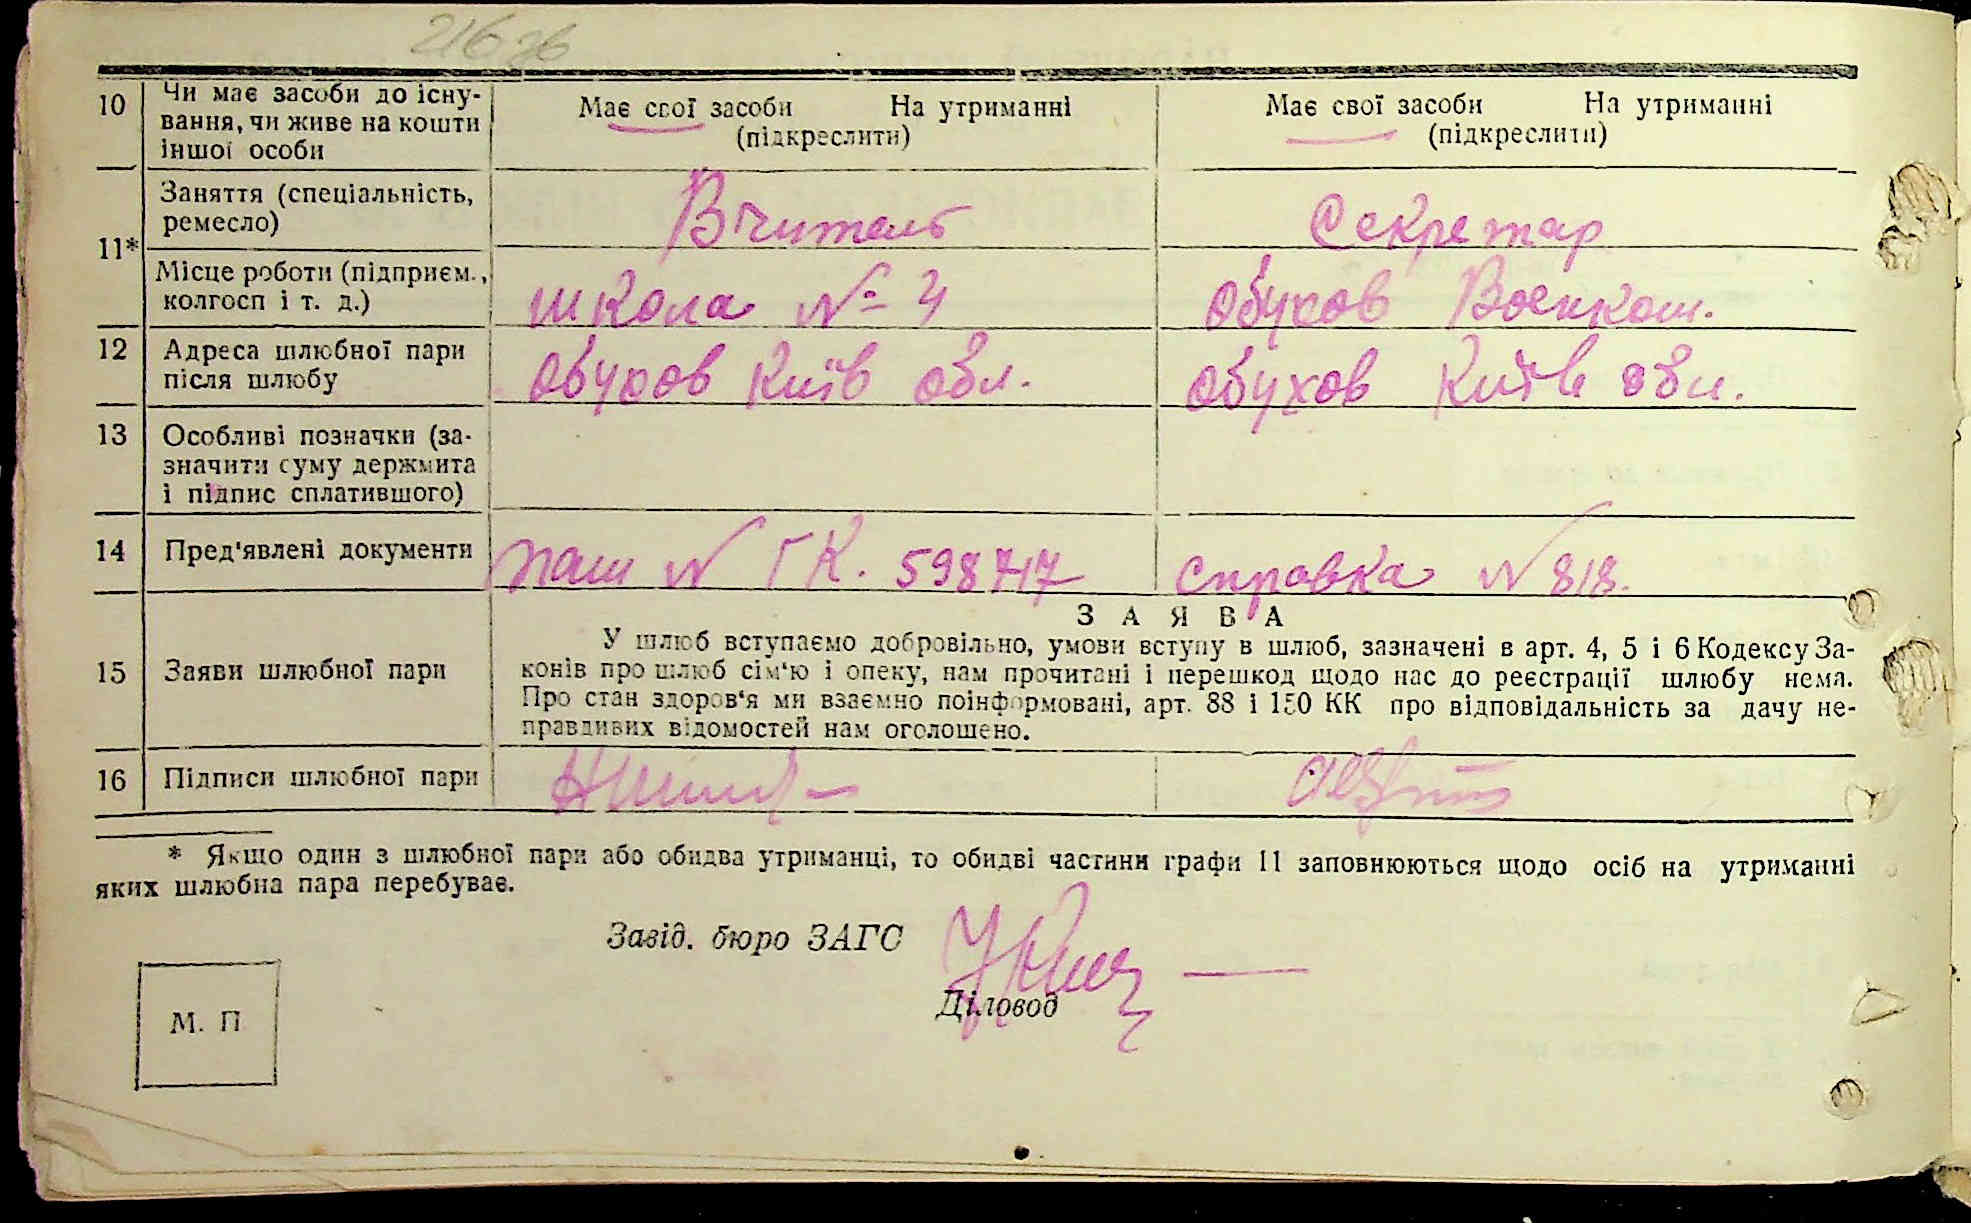 216зв
10 Чи має засоби до існу-
вання, чи живе на кошти
іншої особи
Має свої засоби На утриманні
(підкреслити)
Має свої засоби На утриманні
(підкреслити)
11* Заняття (спеціальність,
ремесло)
Вчитель
Секретар
Місце роботи (підприєм.,
колгосп і т. д.)
школа № 4
Обухов Военком.
12 Адреса шлюбної пари
після шлюбу
Обухов Київ обл.
Обухов Київ обл.
13 Особливі позначки (за-
значити суму держмита
і підпис сплатившого)
14 Пред'явлені документи
паш № ГК. 598717
справка № 818.
15 Заяви шлюбної пари
ЗАЯВА
У шлюб вступаємо добровільно, умови вступу в шлюб, зазначені в арт. 4, 5 і 6 Кодексу За-
конів про шлюб сім'ю і опеку, нам прочитані і перешкод щодо нас до реєстрації шлюбу нема.
Про стан здоров'я ми взаємно поінформовані, арт. 88 і 150 КК про відповідальність за дачу не-
правдивих відомостей нам оголошено.
16 Підписи шлюбної пари
* Якщо один з шлюбної пари або обидва утриманці, то обидві частини графи 11 заповнюються щодо осіб на утриманні
яких шлюбна пара перебуває.
Завід. бюро ЗАГС
Діловод
М. П